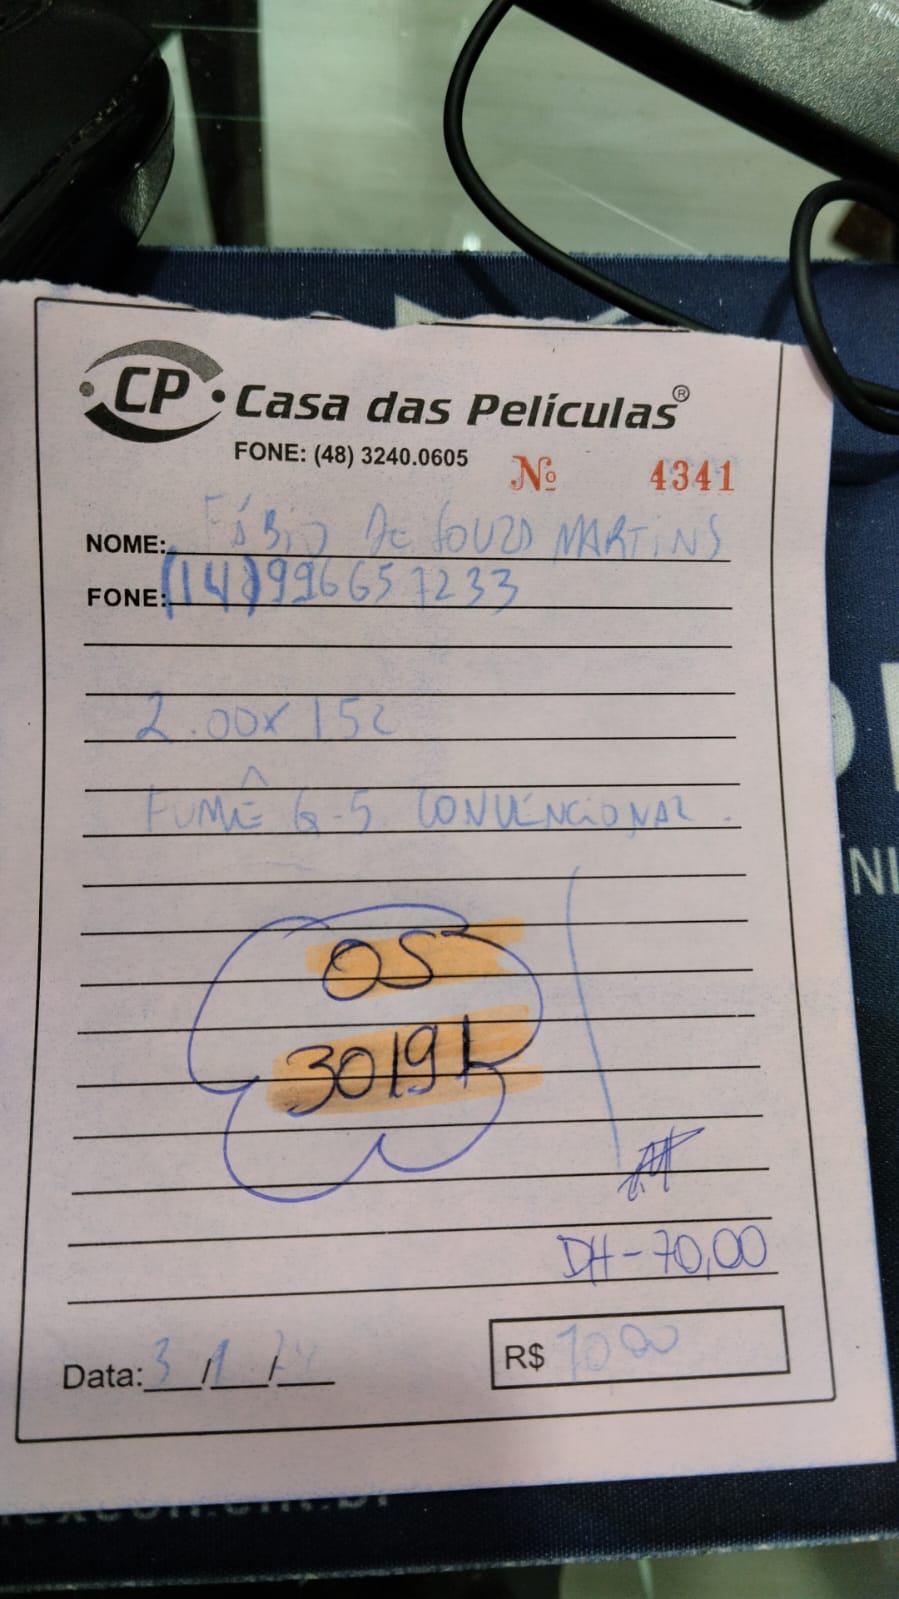 CP Casa das Películas®
FONE: (48) 3240.0605 Nº 4341
NOME: FÁBIO DE SOUZA MARTINS
FONE: (14) 996657233
2.00x152
FUMÊ G-5 CONVENCIONAL.
OS
30191
DH-70,00
Data: 3/1/24 R$ 70 00